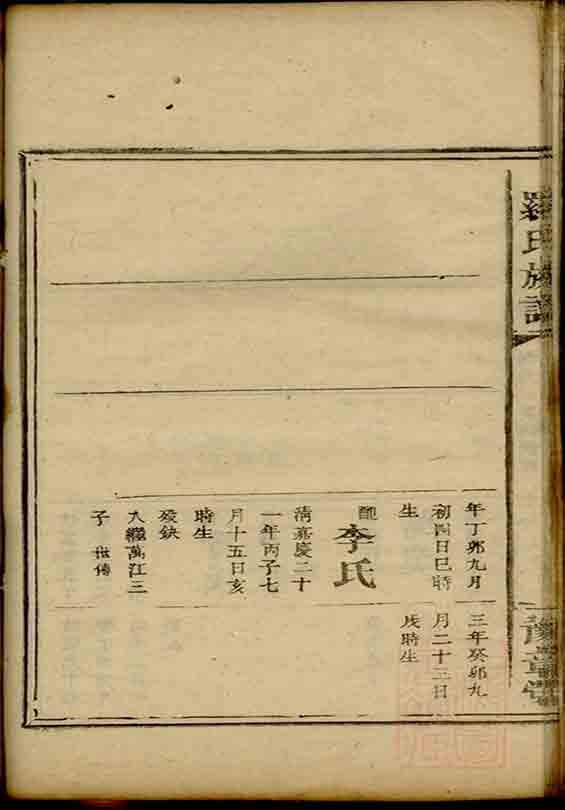 羅氏族譜
豫章堂
年丁卯九月
初四日巳時
生
配
李氏
清嘉慶二十
一年丙子七
月十五日亥
時生
歿缺
入繼萬江三
子 世傳
三年癸卯九
月二十二日
戌時生